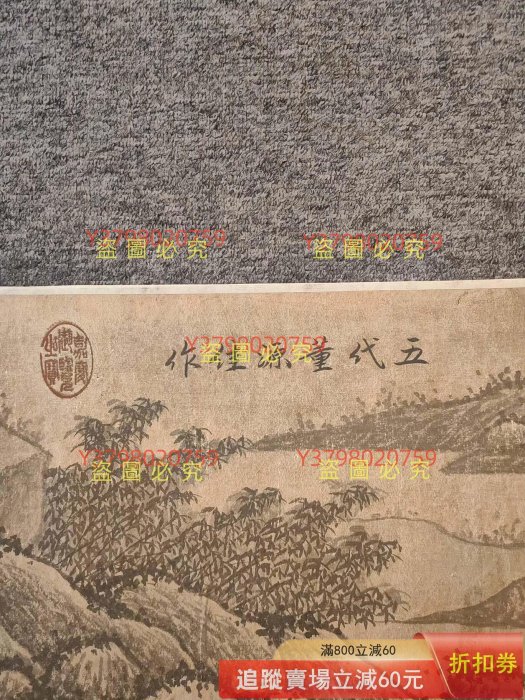 Y3798020759
盜圖必究
Y3798020759
盜圖必究
嘉慶御覽之寶
五代董源作
Y3798020759
盜圖必究
Y3798020759
盜圖必究
Y3798020759
盜圖必究
滿800立減60
追蹤賣場立減60元
折扣券